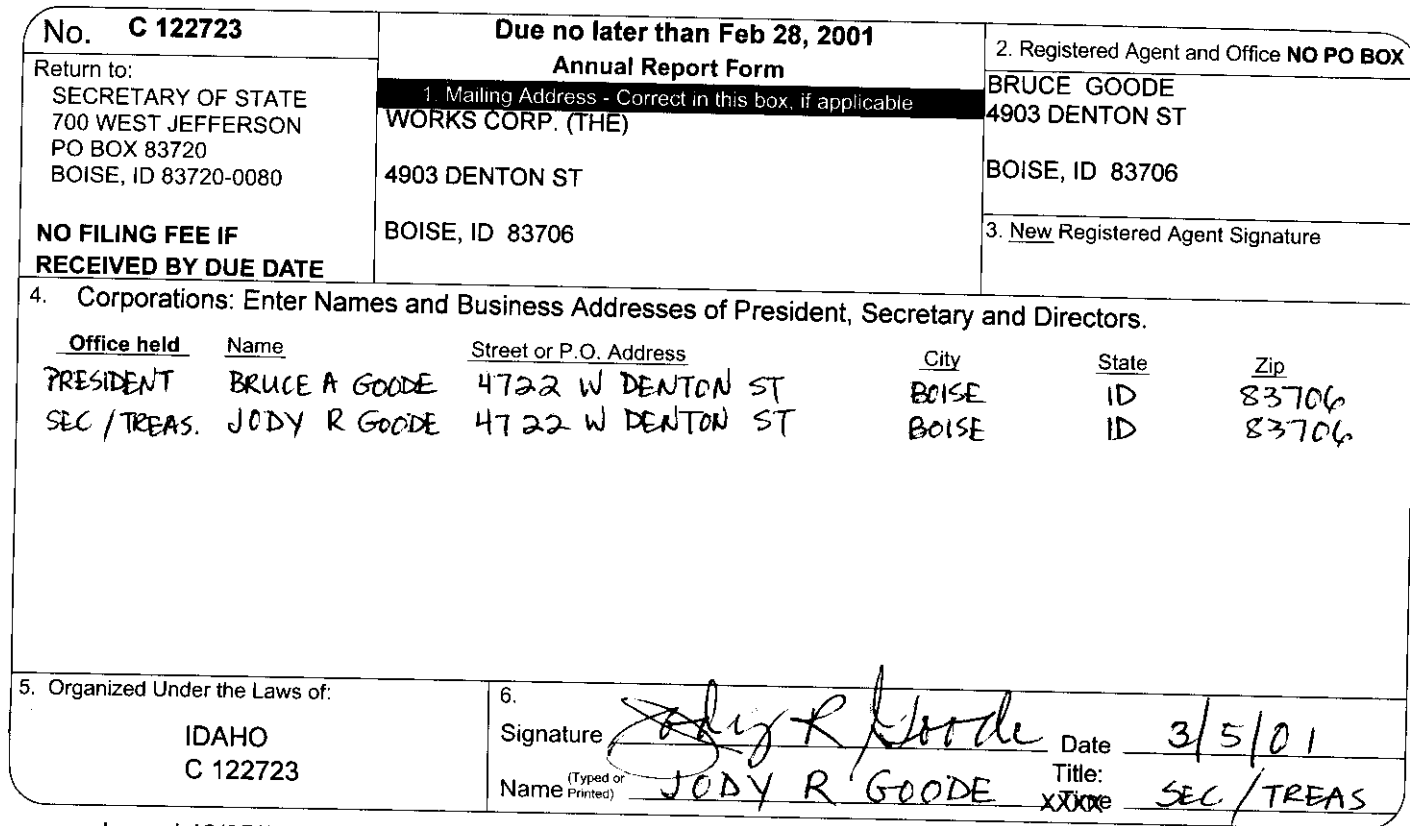 No. C 122723
Return to:
SECRETARY OF STATE
700 WEST JEFFERSON
PO BOX 83720
BOISE, ID 83720-0080
NO FILING FEE IF
RECEIVED BY DUE DATE
Due no later than Feb 28, 2001
Annual Report Form
1. Mailing Address - Correct in this box, if applicable
WORKS CORP. (THE)
4903 DENTON ST
BOISE, ID 83706
2. Registered Agent and Office NO PO BOX
BRUCE GOODE
4903 DENTON ST
BOISE, ID 83706
3. New Registered Agent Signature
4. Corporations: Enter Names and Business Addresses of President, Secretary and Directors.
Office held Name Street or P.O. Address City State Zip
PRESIDENT BRUCE A GOODE 4722 W DENTON ST BOISE ID 83706
SEC / TREAS. JODY R GOODE 4722 W DENTON ST BOISE ID 83706
5. Organized Under the Laws of:
IDAHO
C 122723
6.
Signature Jody R Goode Date 3/5/01
Name (Typed or Printed) JODY R GOODE Title: SEC / TREAS